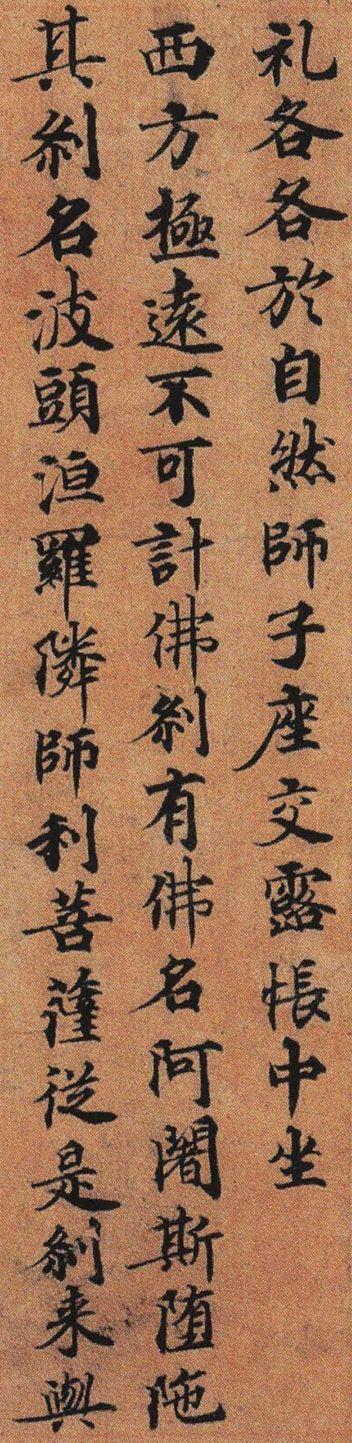 礼各各於自然師子座交露帳中坐
西方極遠不可計佛刹有佛名阿闍斯堕陁
其刹名波頭洹羅隣師利菩薩従是刹来與